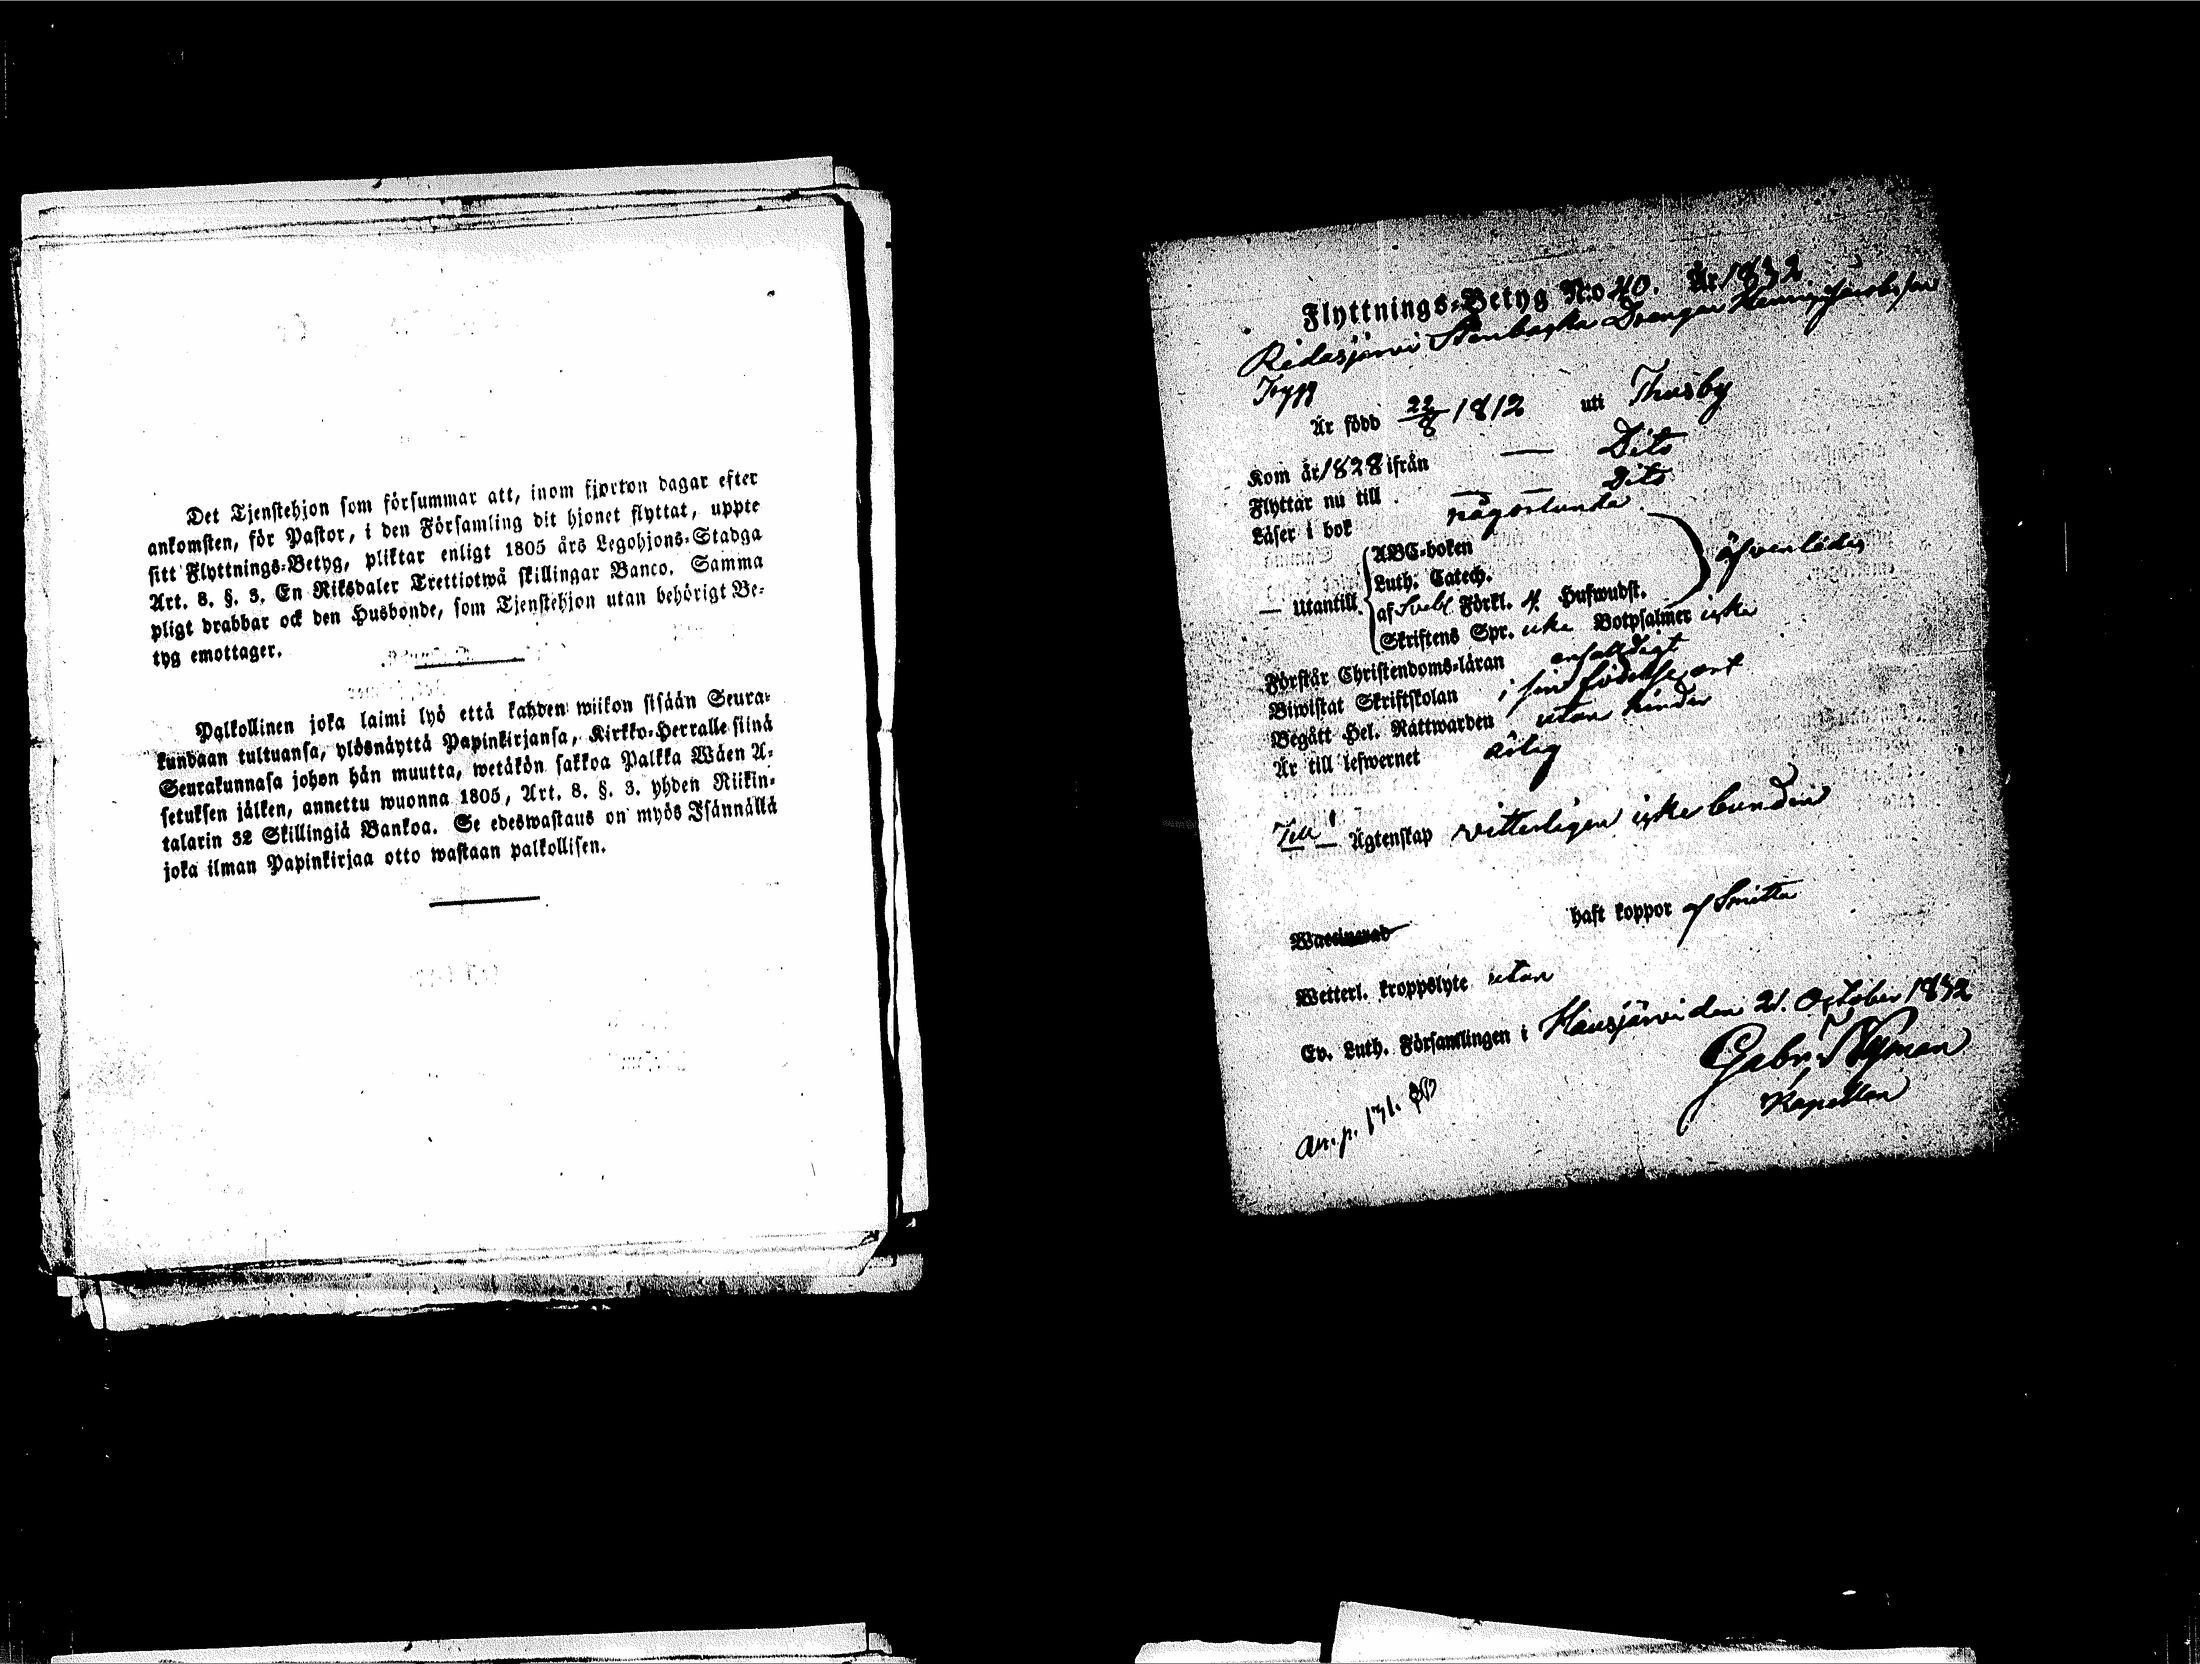 Det Tjenstehjon som försummar att, inom fjorton dagar efter
ankomsten, för Pastor, i den Församling dit hjonet flyttat, uppte
sitt Flyttnings-Betyg, pliktar enligt 1805 års Legohjons-Stadga
Art. 8. §. 3. En Riksdaler Trettiotwå skillingar Banco. Samma
pligt drabbar ock den Husbonde, som Tjenstehjon utan behörigt Be-
tyg emottager.
Palkollinen joka laimi lyö että kahden wiikon sisään Seura-
kundaan tultuansa, ylösnäyttä Papinkirjansa, Kirkko-Herralle siinä
Seurakunnasa johon hän muutta, wetäkön sakkoa Palkka Wäen A-
setuksen jälken, annettu wuonna 1805, Art. 8. §. 3. yhden Riikin-
talarin 32 Skillingiä Bankoa. Se edeswastaus on myös Isännällä
joka ilman Papinkirjaa otto wastaan palkollisen.
Flyttnings-Betyg N:o 40. År 1832
Ridasjärvi Stenbacka Drengen Henric Jacobsson
Trygg
Är född 22/8 1812 uti Thusby
Kom år 1828 ifrån — Dito
Flyttar nu till — — Dito
Läser i bok någorlunda
— Utantill
ABC-boken
Luth. Catech.
af Sveb. Förkl. 4 Hufwudst.
Skriftens Spr. icke Botpsalmer icke
äfvenledes
Förstår Christendoms-läran enfaldigt
Biwistat Skriftskolan i sin födelse ort
Begått Hel. Nattwarden utan hinder
Är till lefwernet ärlig
Till Ägtenskap vitterligen icke bunden
Waccinerad haft koppor af Smitta
Wetterl. kroppslyte utan
Ev. Luth. Församlingen i Hausjärvi den 21. October 1832
Gabr. Nyman
Kapellan
An. p. 131.